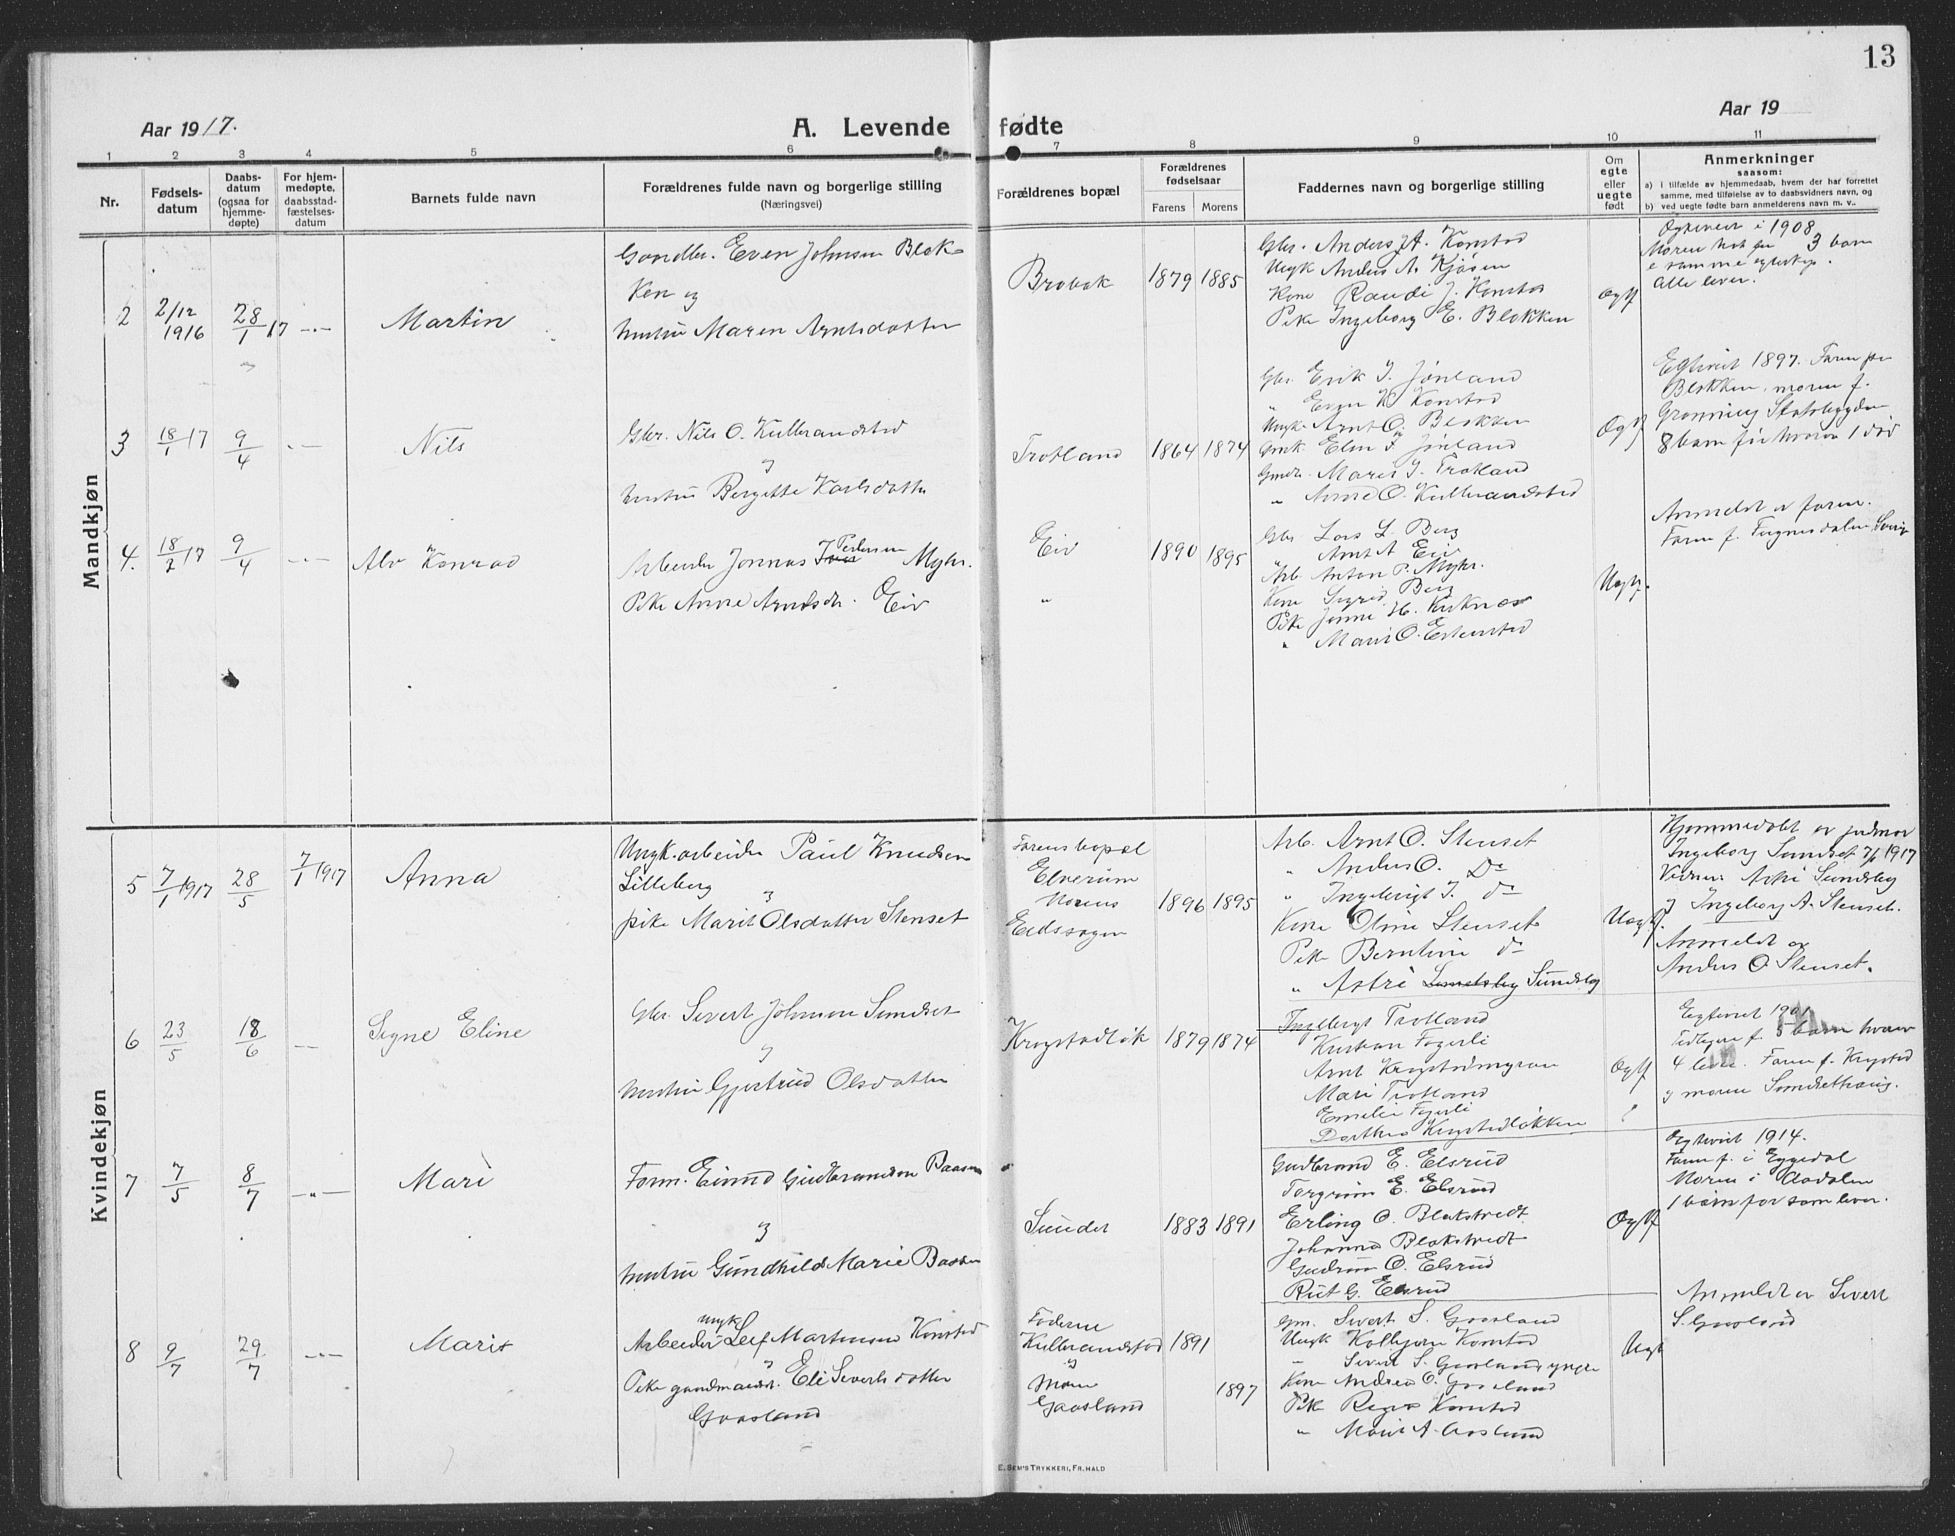 13
Aar 1917.
A. Levende fødte
Aar 19
1 2 3 4 5 6 7 8 9 10 11
Nr.
Fødsels-
datum
Daabs-
datum
(ogsaa for
hjemme-
døpte)
For hjem-
medøpte,
daabsstad-
fæstelses-
datum
Barnets fulde navn
Forældrenes fulde navn og borgerlige stilling
(Næringsvei)
Forældrenes bopæl
Forældrenes
fødselsaar
Farens Morens
Faddernes navn og borgerlige stilling
Om
egte
eller
uegte
født
Anmerkninger
saasom:
a) i tilfælde av hjemmedaab, hvem der har forrettet
samme, med tilføielse av to daabsvidners navn, og
b) ved uegte fødte barn anmelderens navn m. v..
Mandkjøn
2
2/12
1916
28/1 17
-..-
Martin
Gaardbr. Even Johnsen Blok-
ken og
hustru Maren Arntsdatter
Brobak
1879 1885
Gbr. Anders A. Konstad
Ungk Anders A. Kjøsen
Kone Randi J. Konstad
Pike Ingeborg E. Blokken
Egtf
Egteviet i 1908
3 barn
Alle lever.
3
18/1 17
9/4
-..-
Nils
Gbr. Nils O. Kulbrandstad
og
hustru Bergitte Karlsdatter
Trotland
1864 1874
Gbr. Erik I. Jønland
" Even K. Konstad
Ungk. Arnt O. Blokken
Jønland
Marit J. Trotland
" Anne O. Kulbrandstad
Egtf
Egteviet 1897. Faren fra
Blokken, moren f.
Grønning Stadsbygden
8 barn før hvorav 1 død
4.
18/2 17
9/4
-..-
Alv Konrad
Arbeider Jonnas Pedersen Myhr.
Pike Anne Arntsdr. Eiv
Eiv
"
1890 1895
Gbr Lars L. Berg
" Arnt A Eiv
Arb. Anton P. Myhr.
Kone Sigrid Berg
Pike Jenni H. Kirknes
" Marit O. Estenstad
Uegtf.
Anmeldt av faren.
Kvindekjøn
5
7/1 1917
28/5
7/1 1917
Anna
Ungk. arbeider Paul Knudsen
Lilleberg
og
pike Marit Olsdatter Stenset
Farens bopæl
Elverum
Morens
Eidsvaagen
1896 1895
Arb. Arnt O. Stenset
" Anders O. Do
" Ingebrigt I. do
Kone Oline Stenset
Pike Berntine do
" Astri Sundsby
Uegtf.
Hjemmedøbt av jordmor
Ingeborg Sundset 7/1 1917
Vidner: Astri Sundsby
og Ingeborg A. Stenset.
Anmeldt av
Anders O Stenset.
6
23/5
18/6
—
Signe Eline
Gbr. Sivert Johnsen Sundset
og
hustru Gjertrud Olsdatter
Krogstadløk
1879 1874
Ingebrigt Trotland
Kristian Fagerli
Arnt Krogstadmyran
Mari Trotland
Emelie Fagerli
Dorthea Krogstadløkken
Egtf
Egteviet
Tidligere f. 5 barn hvorav
4 lever. Faren f. Krogstad
og moren Sundsethaug.
7
7/5
8/7
-"-
Mari
Form. Eivind Gudbrandsen Baasen
og
hustru Gundhild Marie Baasen
Sundet
1883 1891
Gudbrand E. Elsrud
Torgrim E. Elsrud
Erling O. Blakstvedt.
Johanna Blakstvedt
Gudrun O. Elsrud
Rut G. Elsrud
Egtf
Egteviet 1914.
Faren f. i Eggedal
Moren i Aadalen
1 barn før som lever.
8
9/7
29/7
-..-
Marit
ungk
Arbeider Leif Martinsen Konstad
og
Pike gaardmandsdr. Eli Sivertsdatter
Gaasland
Faderen
Kulbrandstad
og
Moren
Gaasland
1891
1897
Gm. Sivert S. Gaasland
Ungk Kolbjørn Konstad
" Sivert S. Gaasland yngre
Kone Andrea O. Gaasland
Pike Konstad
" Marit A. Aaslund
Uegt
Anmeldt av Sivert
S. Gaasland
E. SEM'S TRYKKERI, FR.HALD